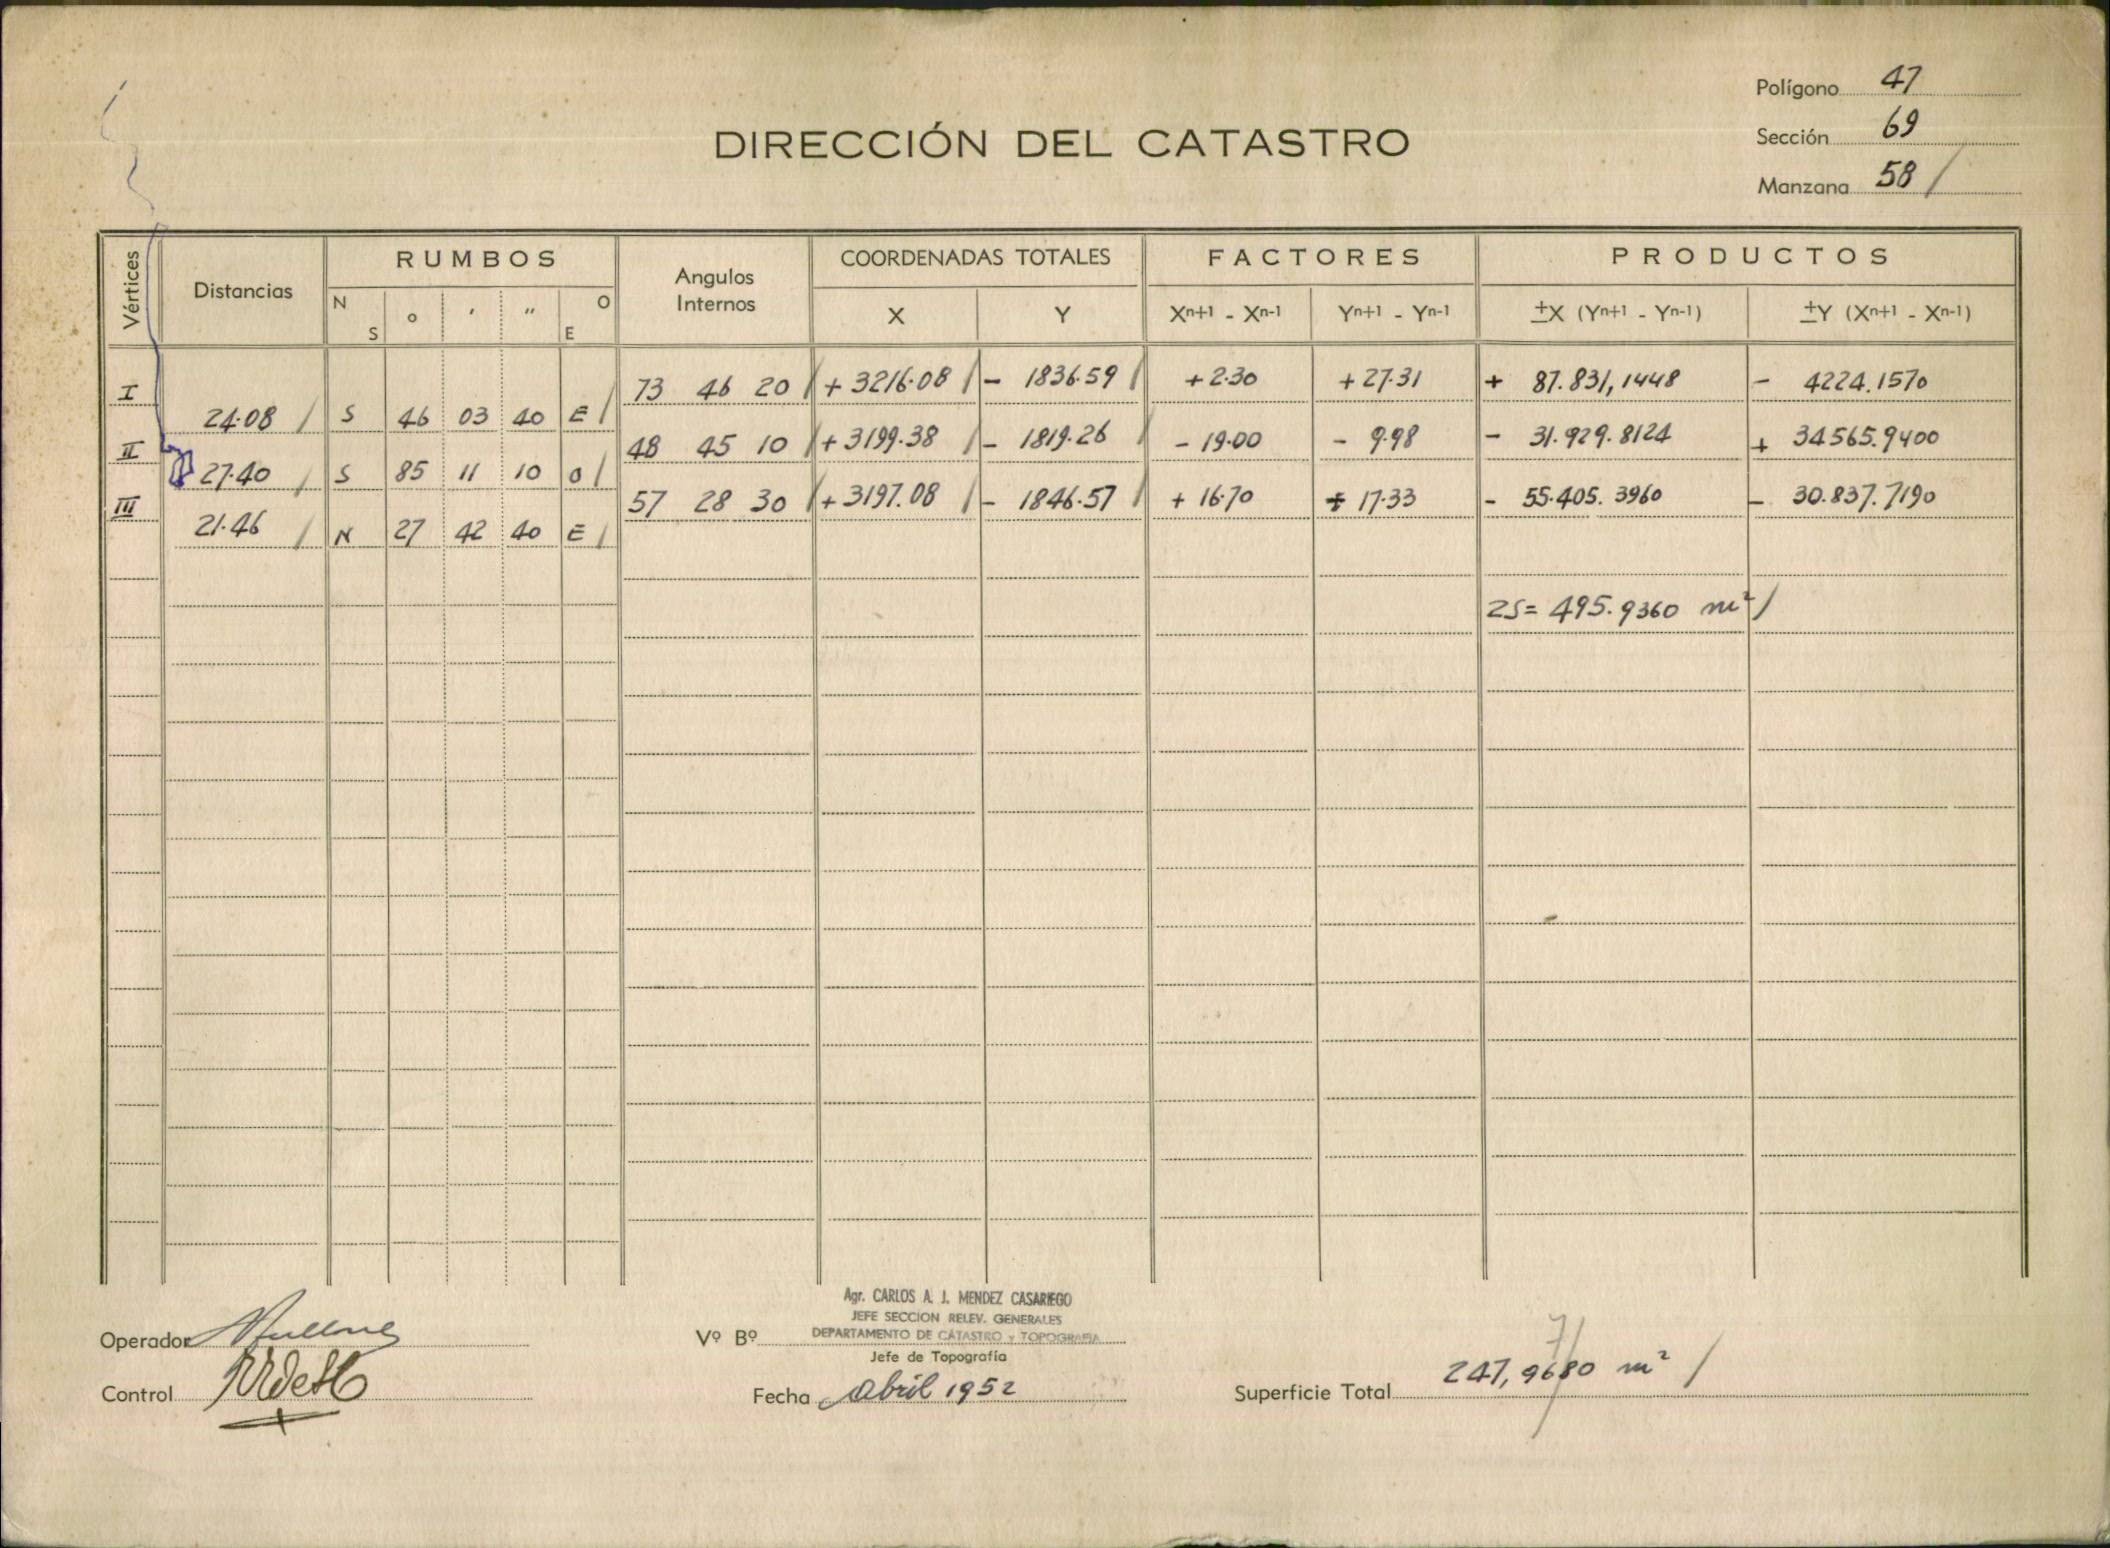 Polígono 47
Sección 69
Manzana 58 /
DIRECCIÓN DEL CATASTRO
Vértices Distancias RUMBOS Angulos Internos COORDENADAS TOTALES FACTORES PRODUCTOS
N S o ' " O E X Y Xn+1 - Xn-1 Yn+1 - Yn-1 ±X (Yn+1 - Yn-1) ±Y (Xn+1 - Xn-1)
I 73 46 20 / + 3216.08 / - 1836.59 / + 2.30 + 27.31 + 87.831,1448 - 4224.1570
24.08 / S 46 03 40 E /
II 48 45 10 / + 3199.38 / - 1819.26 / - 19.00 - 9.98 - 31.929.8124 + 34565.9400
27.40 / S 85 11 10 O /
III 57 28 30 / + 3197.08 / - 1846.57 / + 16.70 17.33 - 55.405.3960 - 30.837.7190
21.46 / N 27 42 40 E /
2S= 495.9360 m² /
Agr. CARLOS A. J. MENDEZ CASARIEGO
JEFE SECCION RELEV. GENERALES
DEPARTAMENTO DE CATASTRO y TOPOGRAFIA
Operador
Vº Bº
Jefe de Topografía
7
Control
Fecha Abril 1952
Superficie Total 247,9680 m² /